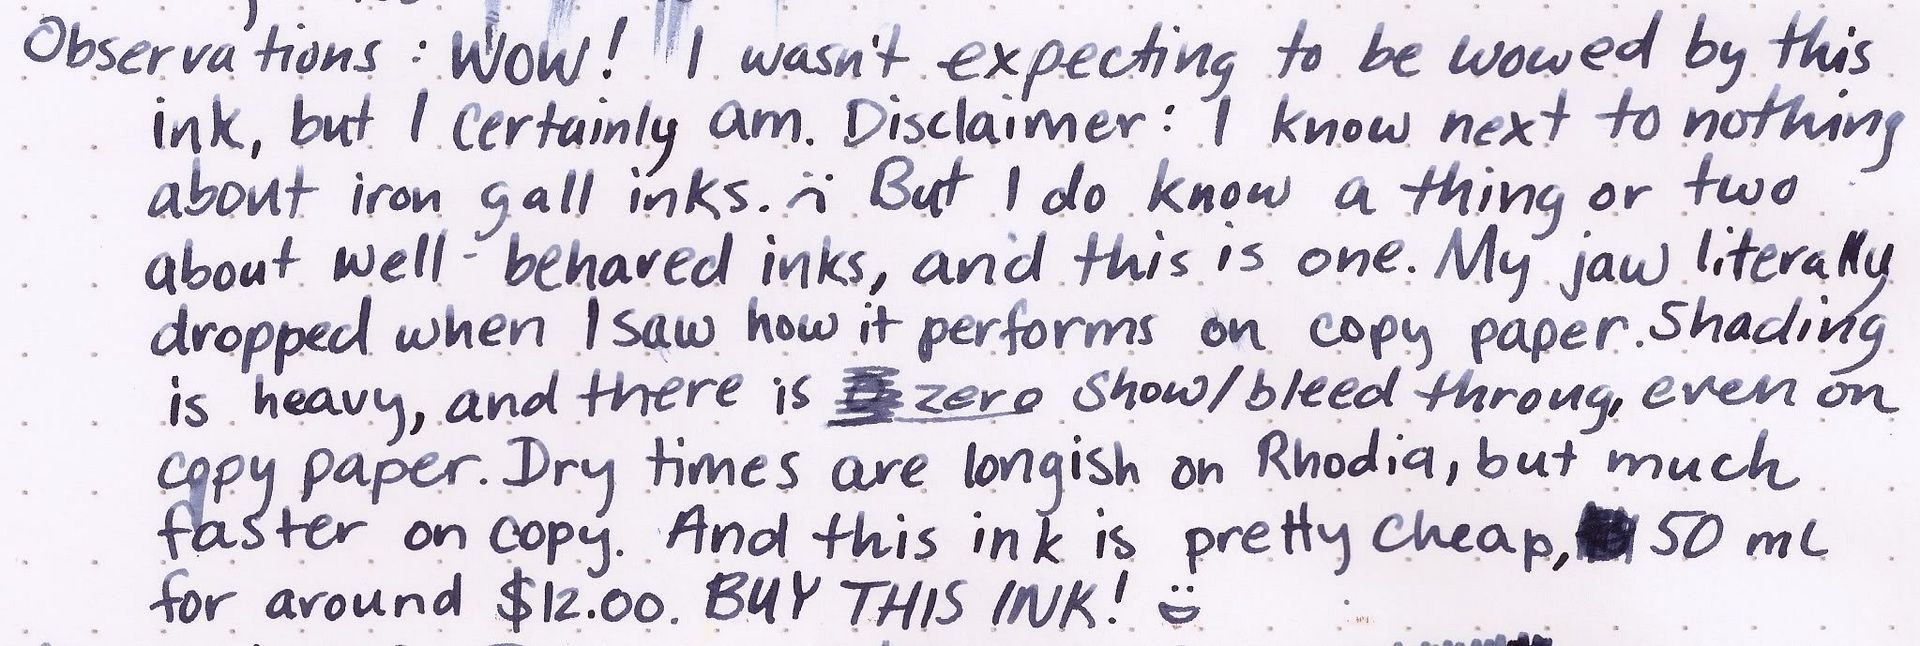 Observations: WOW! I wasn't expecting to be wowed by this
ink, but I certainly am. Disclaimer: I know next to nothing
about iron gall inks. :( But I do know a thing or two
about well-behaved inks, and this is one. My jaw literally
dropped when I saw how it performs on copy paper. Shading
is heavy, and there is zero show/bleed throug, even on
copy paper. Dry times are longish on Rhodia, but much
faster on copy. And this ink is pretty cheap, 50 mL
for around $12.00. BUY THIS INK! :D